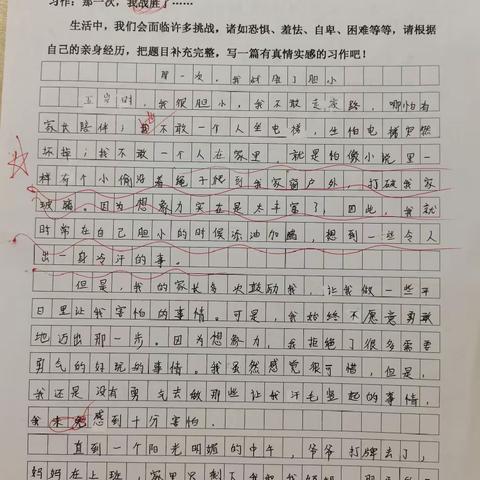 习作：那一次，我战胜了……
生活中，我们会面临许多挑战，诸如恐惧、羞怯、自卑、困难等等，请根据
自己的亲身经历，把题目补充完整，写一篇有真情实感的习作吧！
那一次，我战胜了胆小
五岁时，我很胆小，我不敢走夜路，哪怕有
家长陪伴；我不敢一个人坐电梯，生怕电梯突然
坏掉；我不敢一个人在家里，就是怕像小说里一
样有个小偷沿着绳子爬到我家窗户外，打破我家
玻璃。因为想象力实在是太丰富了，因此，我就
时常在自己胆小的时候添油加醋，想到一些令人
出一身冷汗的事。
但是，我的家长多次鼓励我，让我做一些平
日里让我害怕的事情。可是，我始终不愿意勇敢
地迈出那一步。因为想象力，我拒绝了很多需要
勇气的好玩的事情。我虽然感觉很可惜，但是，
我还是没有勇气去做那些让我汗毛竖起的事情，
我感到十分害怕。
直到一个阳光明媚的中午，爷爷打牌去了，
妈妈在上班，家里只剩下我和我